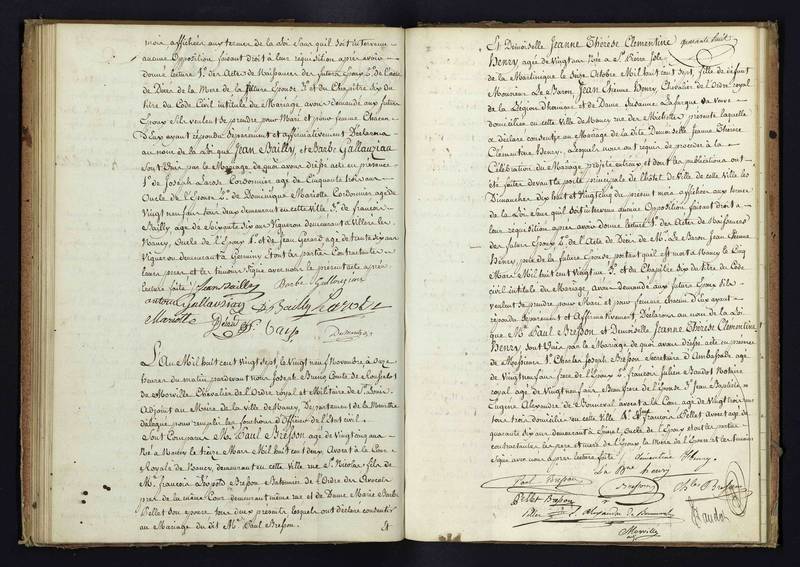 mois affichées aux termes de la Loi sans qu'il soit intervenu
aucune Opposition faisant droit à leur réquisition après avoir
donné lecture 1°. des Actes de Naissances des futurs Epoux 2°. de l'acte
de Décès de la Mère de la future Epouse 3°. et du Chapitre six du
titre du Code Civil intitulé du Mariage avons demandé aux futurs
Epoux s'ils veulent se prendre pour Mari et pour femme Chacun
d'Eux ayant répondu Séparément et affirmativement Déclarons
au nom de la loi que Jean Bailly, et Barbe Gallauziau
sont Unis par le Mariage de quoi avons dressé acte en présence
1°. de Joseph Larose Cordonnier agé de Cinquante trois ans
Oncle de l'Epoux 2°. de Dominique Mariotte Cordonnier agé de
Vingt neuf ans tous deux demeurant en cette Ville 3°. de françois
Bailly, agé de Soixante six ans Vigneron demeurant à Villers les
Nancy, Oncle de l'Epoux 4°. et de Jean Gérard agé de trente six ans
Vigneron demeurant à Germiny et ont les parties Contractantes
leurs pères et les témoins Signé avec nous le présent acte après
lecture faite
Jean Bailly Barbe Gallauziau
antoine Gallauziau Bailly Larose
Mariotte Gérard
L'An Mil huit cent Vingt Sept, le Vingt neuf Novembre à onze
heures du matin pardevant nous Joseph
de Morville, Chevalier de l'Ordre royal et Militaire de St. Louis
Adjoint au Maire de la Ville de Nancy, Département de la Meurthe
délégué pour remplir les fonctions d'Officier de l'Etat civil.
Sont Comparus Mr. Paul Bresson agé de Vingt cinq ans
Né à Nancy le treize Mars Mil huit cent deux, Avocat à la Cour
Royale de Nancy, demeurant en cette Ville rue St. Nicolas fils de
Mr. françois Léopold Bresson Bâtonnier de l'Ordre des Avocats
près de la même Cour demeurant même rue et de Dame Marie Barbe
Pellet son épouse tous deux présents lesquels ont déclaré consentir
au Mariage du dit Mr. Paul Bresson.
Et
quarante huit
Et Demoiselle Jeanne Thérèse Clementine
Henry agée de Vingt ans Née à St. Pierre Isle
de la Martinique le Seize Octobre Mil huit cent Sept, fille de défunt
Monsieur Le Baron Jean Etienne Henry, Chevalier de l'Ordre royal
de la Légion d'honneur et de Dame Susanne Lafargue sa Veuve
domiciliée en cette Ville de Nancy rue des Michottes présente laquelle
a déclaré consentir au Mariage de la dite Demoiselle Jeanne Thérèse
Clémentine Henry. Lesquels nous ont requis de procéder à la
Célébration du Mariage projeté entreux et dont les publications ont
été faites devant la porte principale de l'hôtel de Ville de cette Ville les
Dimanches dix huit et Vingt cinq du présent mois affichées aux termes
de la Loi Sans qu'il soit intervenu aucune Opposition faisant droit à
leur réquisition après avoir donné lecture 1°. des Actes de Naissances
des futurs Epoux 2°. de l'Acte de Décès de Mr. Le Baron Jean Etienne
Henry, père de la future Epouse portant qu'il est mort à Nancy le Cinq
Mars Mil huit cent Vingt un 3°. et du Chapitre Six du titre du Code
civil intitulé du Mariage, avons demandé aux futurs Epoux s'ils
veulent se prendre, pour Mari et pour femme chacun d'Eux ayant
répondu Séparément et Affirmativement Déclarons au nom de la loi
que Mr. Paul Bresson et Demoiselle Jeanne Thérèse Clementine
Henry, sont Unis par le Mariage de quoi avons dressé acte en présence
de Messieurs 1°. Charles Joseph Bresson Secrétaire d'Ambassade agé
de Vingt neuf ans frère de l'Epoux 2°. françois Julien Baudot Notaire
royal agé de Vingt neuf ans Beau frère de l'Epouse 3°. Jean Baptiste
Eugène Alexandre de Bonneval avocat à la Cour agé de Vingt trois ans
tous trois domiciliés en cette Ville 4°. et françois Pellet avocat agé de
quarante six ans demeurant à Epinal, Oncle de l'Epoux et ont les parties
contractantes les père et mère de l'Epoux la Mère de l'Epouse et les témoins
Signé avec nous après lecture faite
Clementine Henry
La Bne henry
Paul Bresson Bresson Ch. Bresson
Pellet Bresson Baudot
Pellet E. Alexandre de Bonneval
Morville